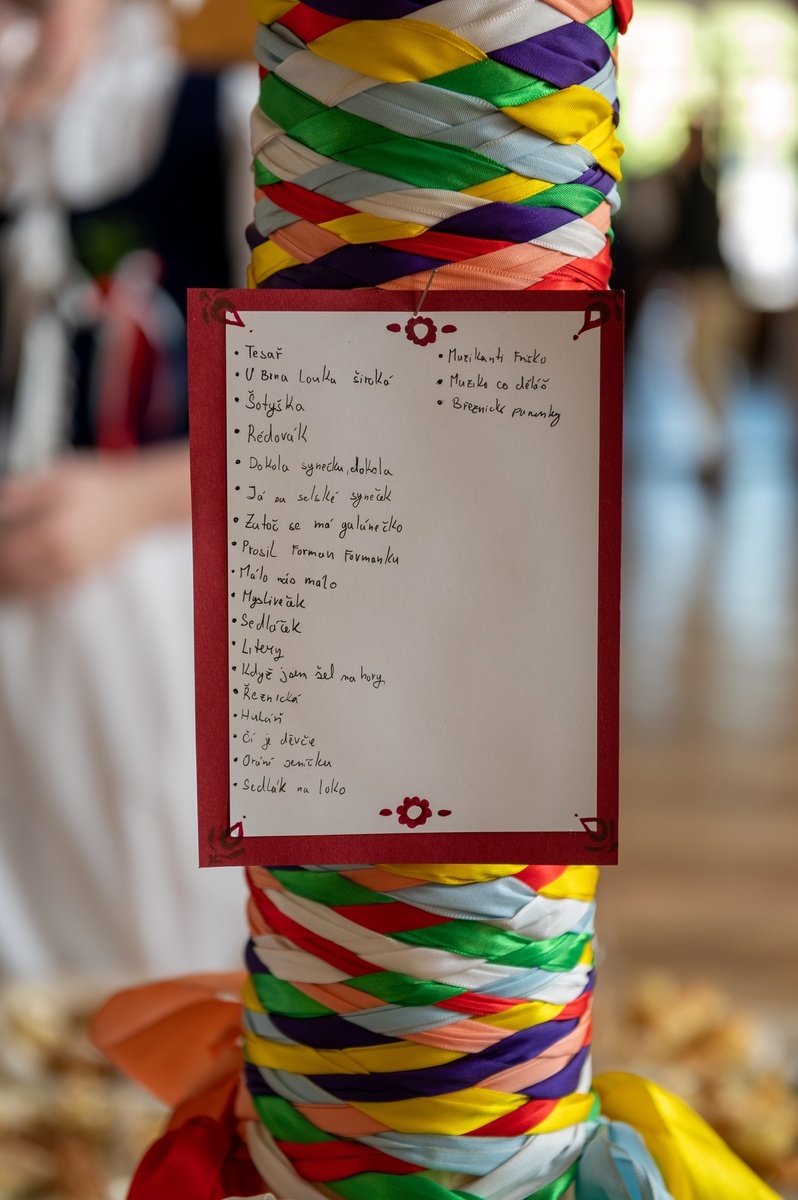 • Tesař
• U Brna Louka široká
• Šotyška
• Rédovák
• Dokola synečku, dokola
• Já su selské syneček
• Zatoč se má galánečko
• Prosil Forman Formanku
• Málo nás málo
• Mysliveček
• Sedláček
• Litery
• Když jsem šel na hory
• Řeznická
• Hulán
• Čí je děvče
• Orání
• Sedlák na
• Muzikanti
• Muziko co děláš
• Březnické panenky